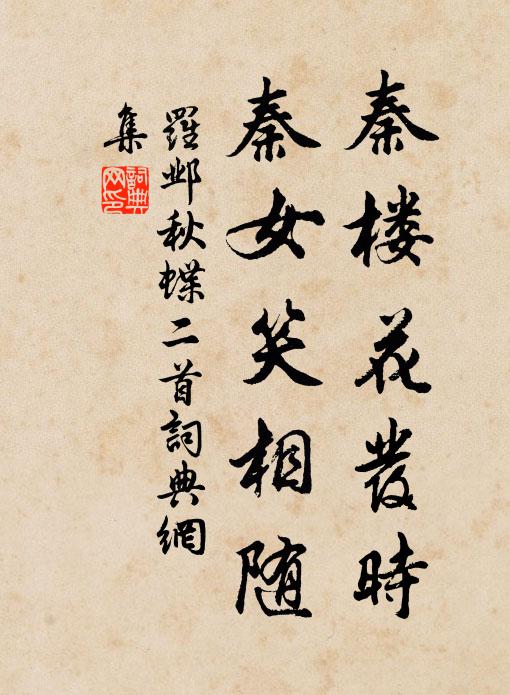 秦楼花發時
秦女笑相随
羅邺秋蝶二首詞典網
集
詞典
网印